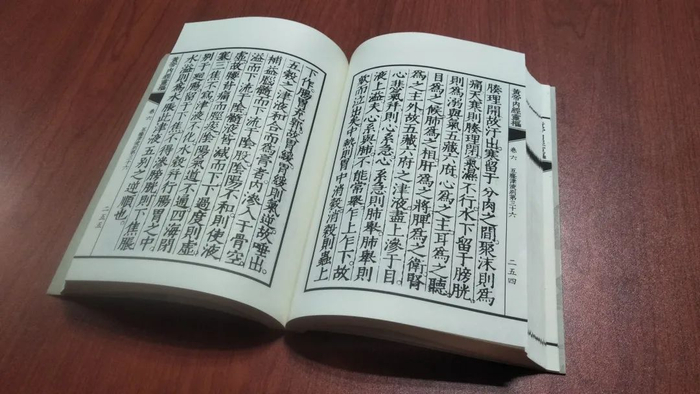 黃帝內經靈樞 卷六 五癃津液別第三十六 二五四
腠理開故汗出寒留于分肉之間聚沫則為
痛天寒則腠理閉氣濕不行水下留于膀胱
則為溺與氣五藏六府心為之主耳為之聽
目為之候肺為之相肝為之將脾為之衛腎
為之主外故五藏六府之津液盡上滲于目
心悲氣并則心系急心系急則肺舉肺舉則
液上溢夫心系與肺不能常舉乍上乍下故
欬而泣出矣中熱則胃中消穀消穀則蟲上
下作腸胃充郭故胃緩胃緩則氣逆故唾出
五穀之津液和合而為膏者內滲入于骨空
補益腦髓而下流于陰股陰陽不和則使液
溢而下流于陰髓液皆減而下下過度則虛
虛故腰背痛而脛痠陰陽氣道不通四海閉
塞三焦不瀉津液不化水穀并行腸胃之中
別于迴腸留于下焦不得滲膀胱則下焦脹
水溢則為水脹此津液五別之逆順也
黃帝內經靈樞 卷六 五癃津液別第三十六 二五五